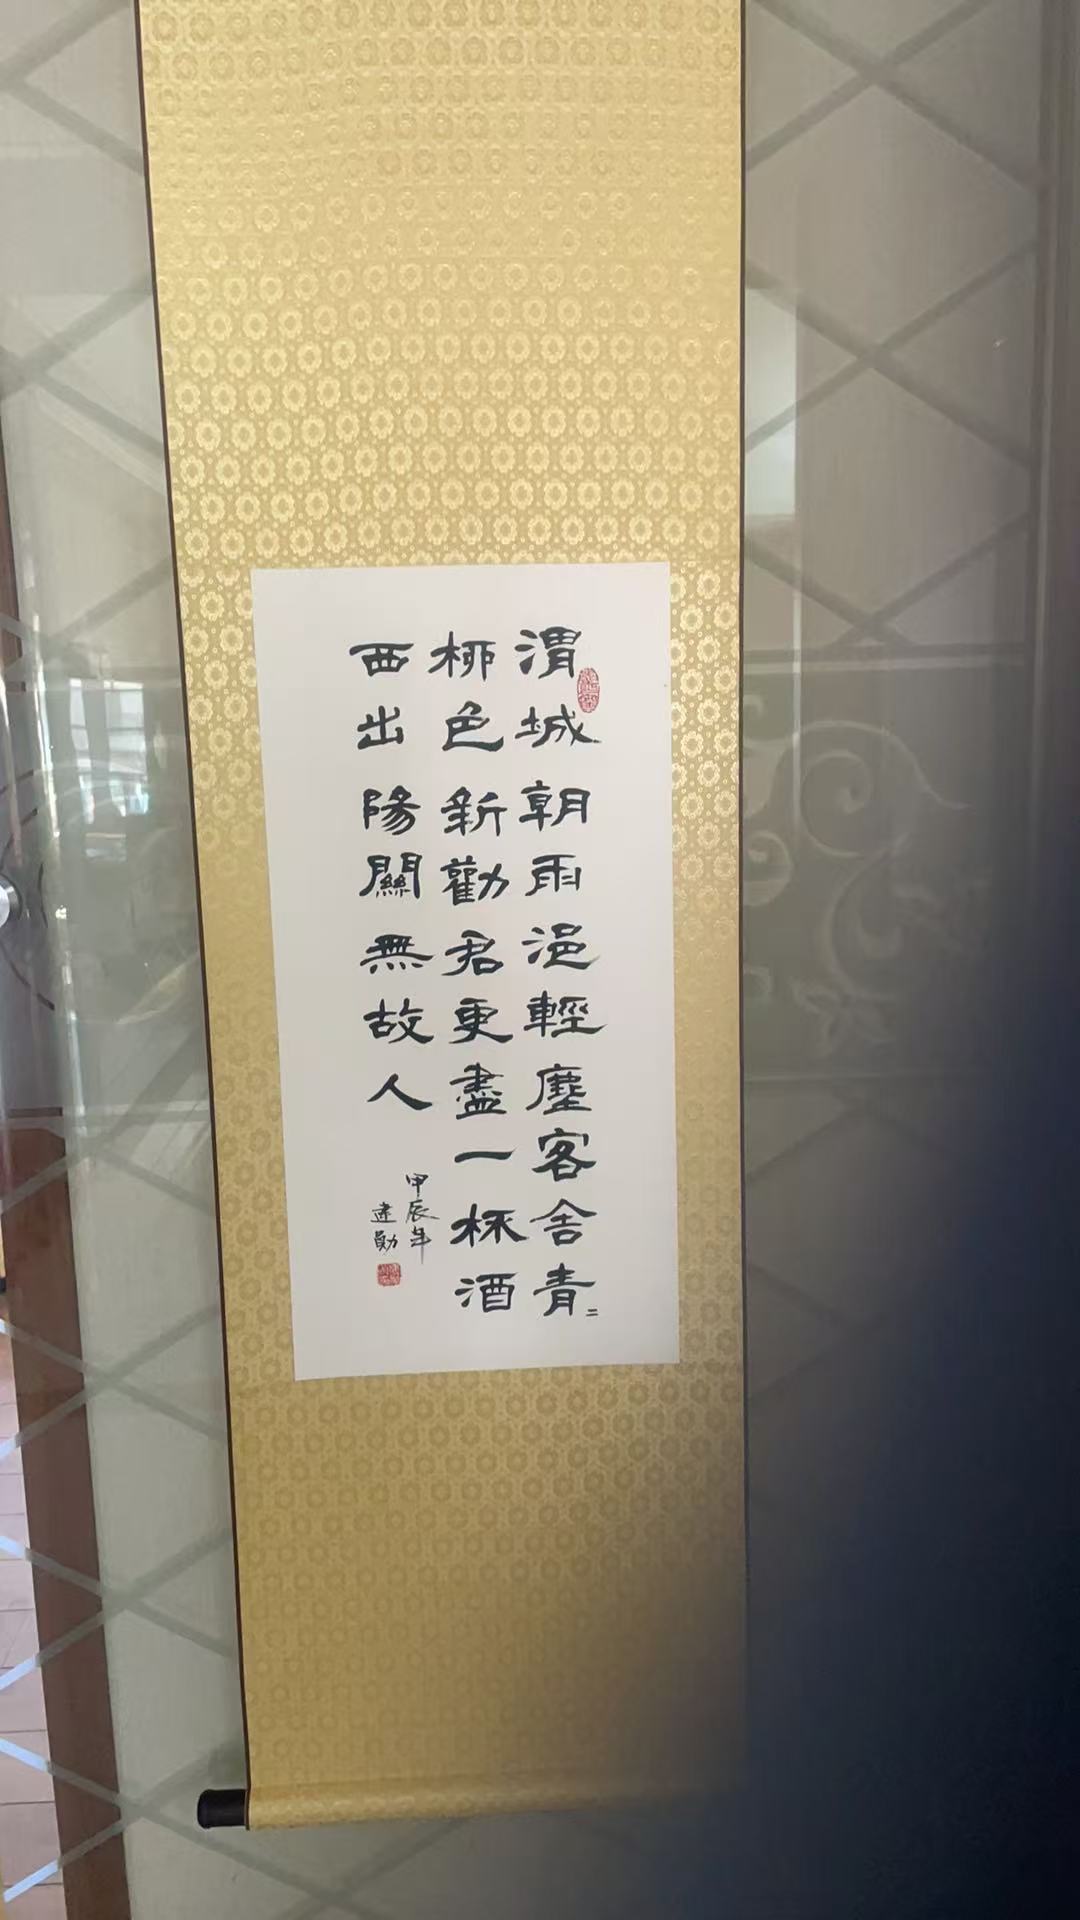 渭城朝雨浥輕塵客舍青〻
柳色新勸君更盡一杯酒
西出陽關無故人
甲辰年
建勛